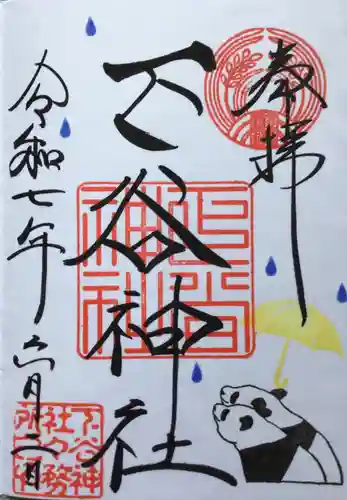 奉拝
下谷神社
令和七年 六月二日
下谷神社
下谷神
社々務
所之印